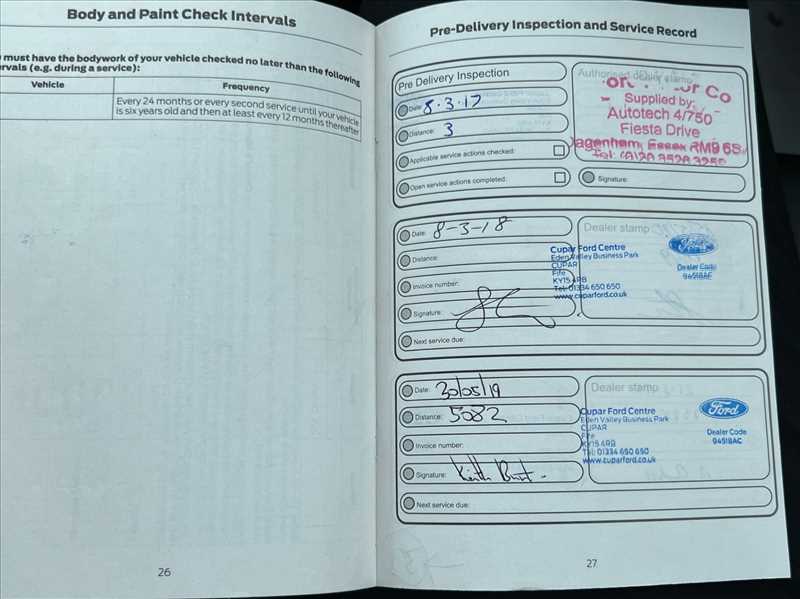 Body and Paint Check Intervals
must have the bodywork of your vehicle checked no later than the following
(e.g. during a service):
Vehicle
Frequency
Every 24 months or every second service until your vehicle
is six years old and then at least every 12 months thereafter
26
Pre-Delivery Inspection and Service Record
Pre Delivery Inspection
Date: 8-3-17
Distance: 3
Applicable service actions checked:
Open service actions completed:
Authorised dealer stamp
Co
Supplied by:
Autotech 4/750
Fiesta Drive
Essex RM9 6S
Signature:
Date: 8-3-18
Distance:
Invoice number:
Signature:
Next service due:
Dealer stamp
Cupar Ford Centre
Eden Valley Business Park
CUPAR
Fife
KY15 4RB
Tel: 01334 650 650
www.cuparford.co.uk
Ford
Dealer Code
Date: 30/05/19
Distance: 5082
Invoice number:
Signature:
Next service due:
Dealer stamp
Cupar Ford Centre
Eden Valley Business Park
CUPAR
Fife
KY15 4RB
Tel: 01334 650 650
www.cuparford.co.uk
Ford
Dealer Code
94518AC
27